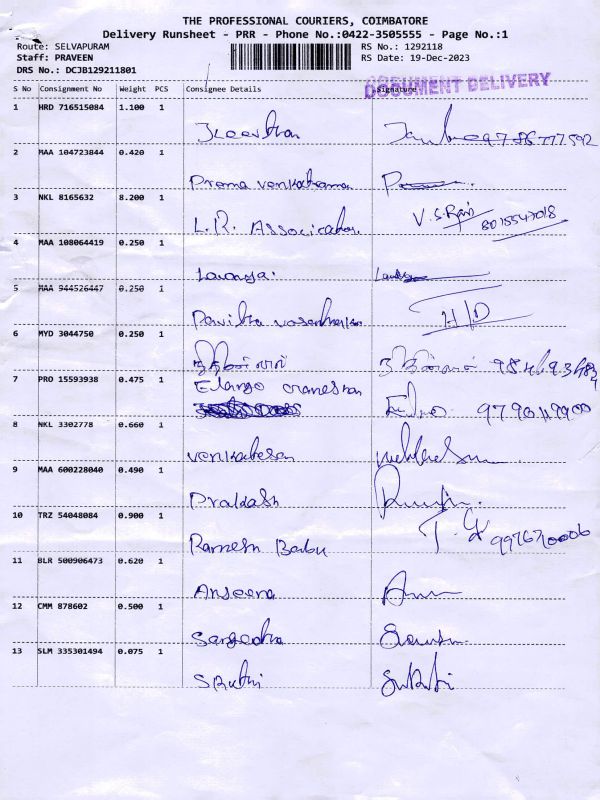 THE PROFESSIONAL COURIERS, COIMBATORE
Delivery Runsheet - PRR - Phone No.:0422-3505555 - Page No.:1
Route: SELVAPURAM
Staff: PRAVEEN
DRS No.: DCJB129211801
RS No.: 1292118
RS Date: 19-Dec-2023
DOCUMENT DELIVERY
S No Consignment No Weight PCS Consignee Details Signature
1 HRD 716515084 1.100 1
2 MAA 104723844 0.420 1 Prema venkatraman
3 NKL 8165632 8.200 1 L.R. Associates V.S.Rao 8015547018
4 MAA 108064419 0.250 1 Lavanya
5 MAA 944526447 0.250 1 Pavithra H/D
6 MYD 3044750 0.250 1
7 PRO 15593938 0.475 1 Elango 9790119900
8 NKL 3302778 0.660 1 venkatesan
9 MAA 600228040 0.490 1 Prakash
10 TRZ 54048084 0.900 1 Ramesh Babu 9976720006
11 BLR 500906473 0.620 1 Anseera
12 CMM 878602 0.500 1
13 SLM 335301494 0.075 1 SRuthi SuRuthi